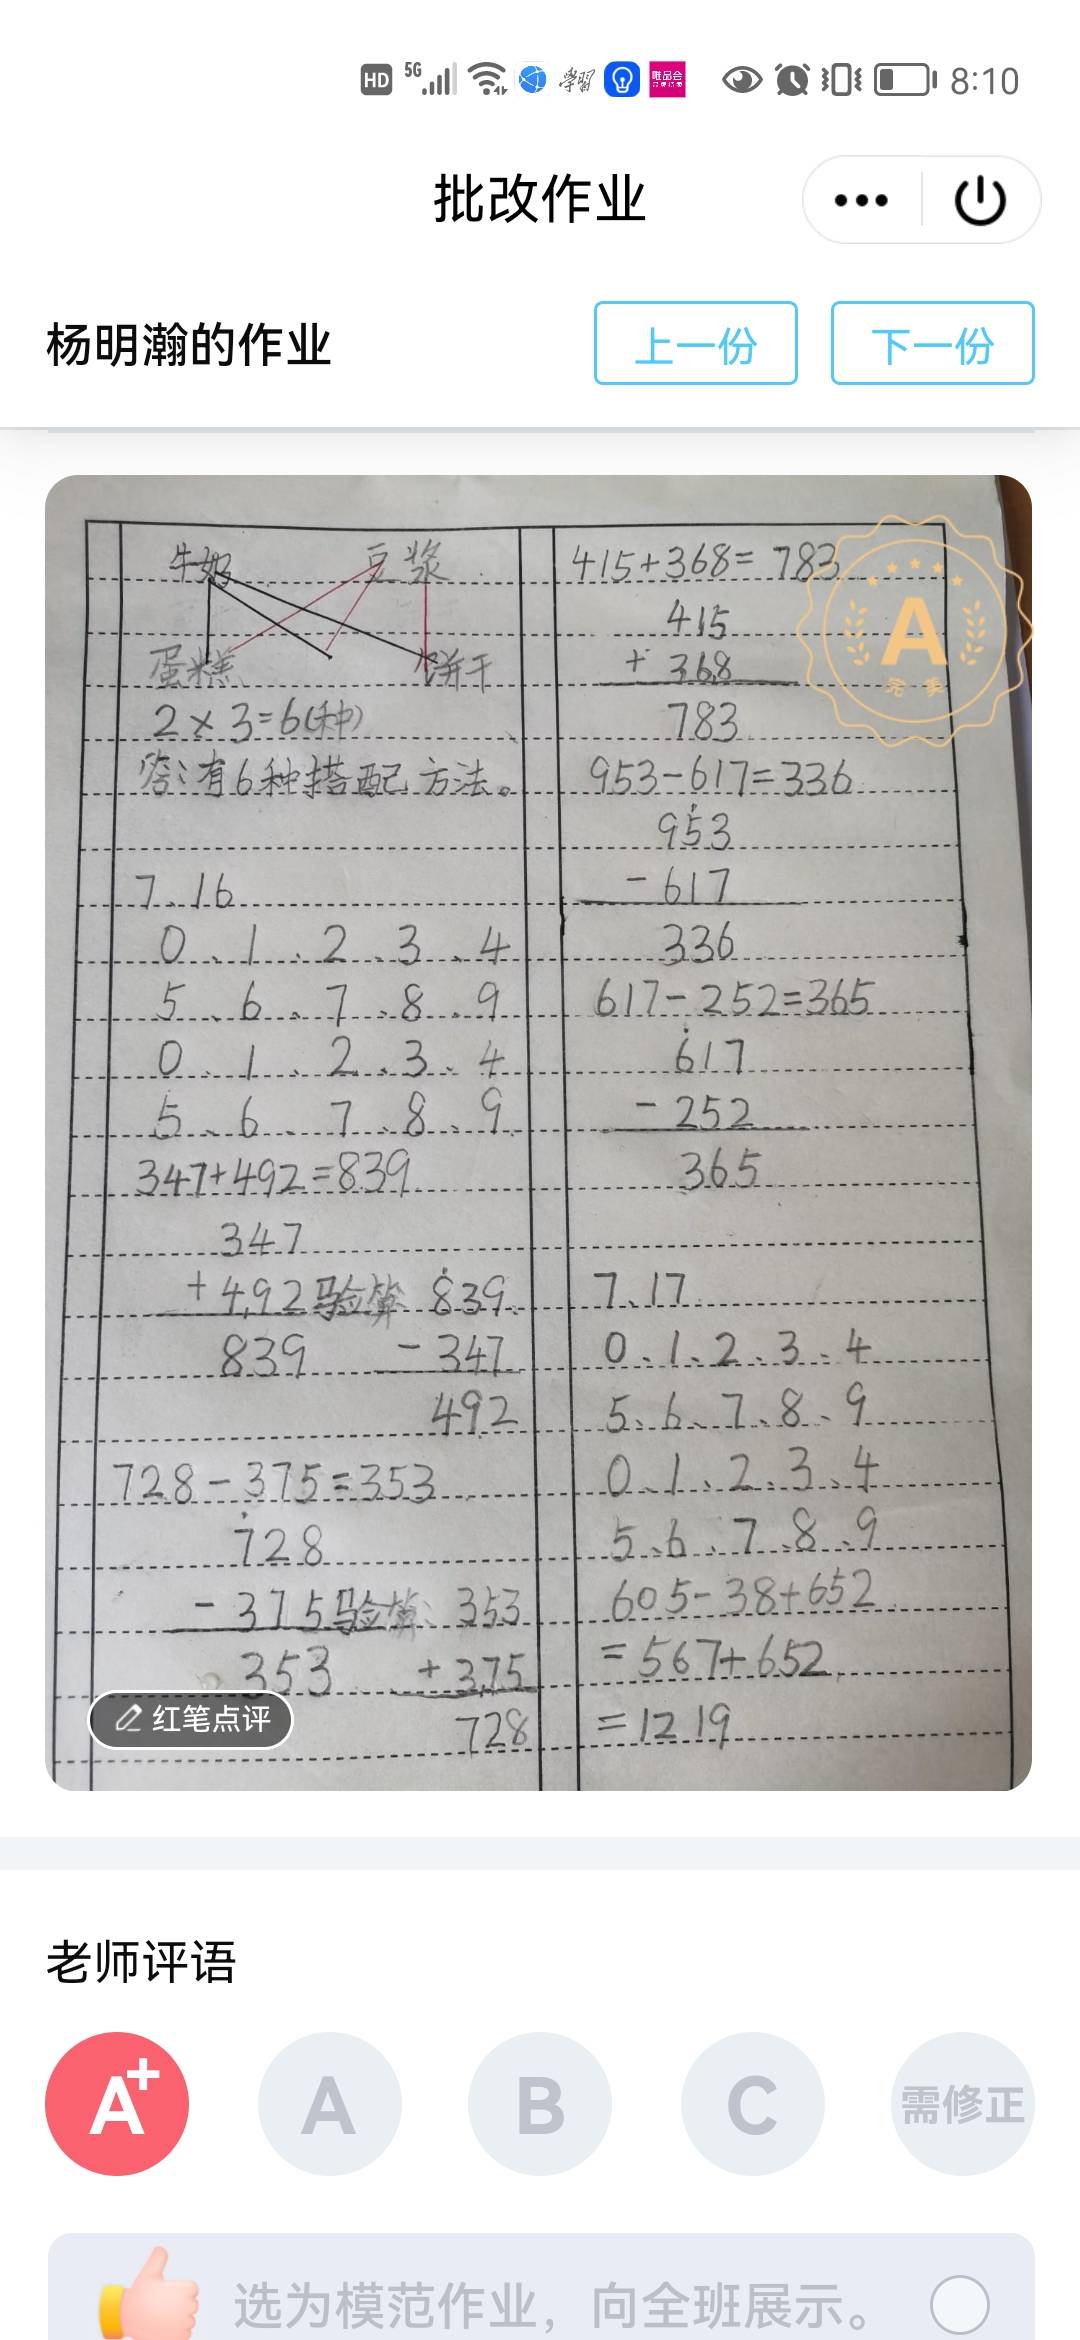 HD 5G 学習 唯品会 8:10
批改作业
杨明瀚的作业
上一份
下一份
牛奶 豆浆
蛋糕 饼干
2×3=6(种)
答:有6种搭配方法。
7.16
0、1、2、3、4
5、6、7、8、9
0、1、2、3、4
5、6、7、8、9
347+492=839
347
+492 验算 839
839 -347
492
728-375=353
728
-375 验算: 353
353 +375
728
红笔点评
415+368=783
415
+368
783
953-617=336
953
-617
336
617-252=365
617
-252
365
7.17
0、1、2、3、4
5、6、7、8、9
0、1、2、3、4
5、6、7、8、9
605-38+652
=567+652
=1219
A
老师评语
A+
A
B
C
需修正
选为模范作业，向全班展示。